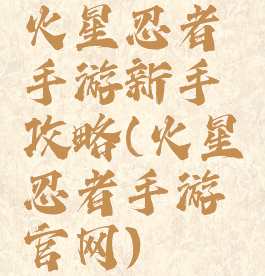 火星忍者
手游新手
攻略(火星
忍者手游
官网)